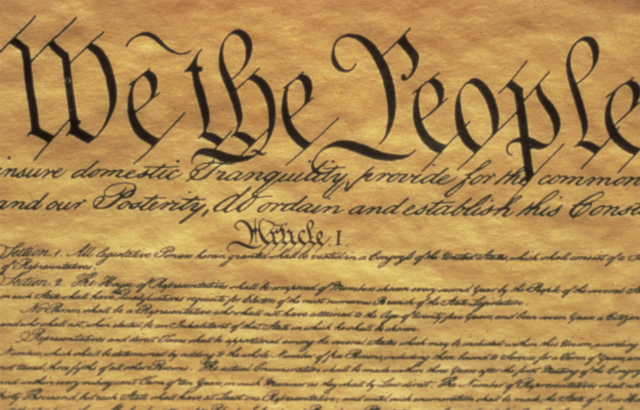 We the People
insure domestic Tranquility, provide for the common
and our Posterity, do ordain and establish this Const
Article. I
Section. 1. All legislative Powers herein granted shall be vested in a Congress of the United States, which shall consist of a
of Representatives.
Section. 2. The House of Representatives shall be composed of Members chosen every second Year by the People of the several
in each State shall have Qualifications requisite for Electors of the most numerous Branch of the State Legislature.
No Person shall be a Representative who shall not have attained to the Age of twenty five Years, and been seven Years a Citizen
and who shall not, when elected, be an Inhabitant of that State in which he shall be chosen.
Representatives and direct Taxes shall be apportioned among the several States which may be included within this Union, according
Numbers, which shall be determined by adding to the whole Number of free Persons, including those bound to Service for a Term of Years
three fifths of all other Persons. The actual Enumeration shall be made within three Years after the first Meeting of the Congress
and within every subsequent Term of ten Years, in such Manner as they shall by Law direct. The Number of Representatives shall not
thirty Thousand, but each State shall have at Least one Representative; and until such enumeration shall be made, the State of New